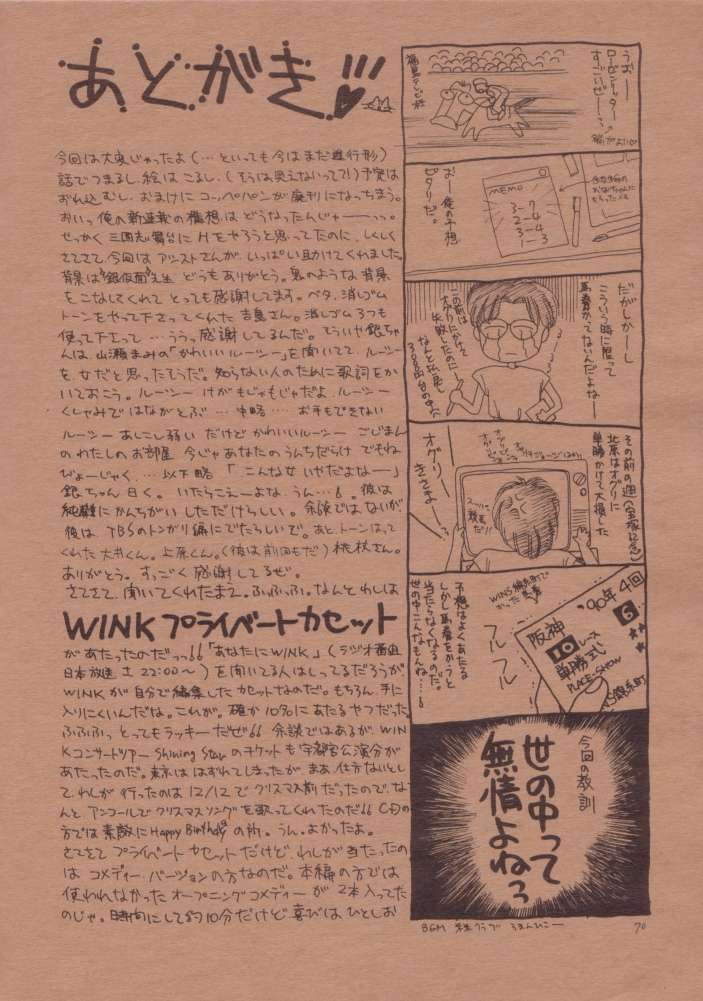 あとがき
今回は大変じゃったよ(…といっても今はまだ進行形)
話でつまるし、絵はこるし、(そうは見えないって?!)予定は
おれ込むし、おまけにコッペパンが廃刊になっちまう。
おいっ俺の新連載の構想はどうなったんじゃーーっっ。
せっかく三国志舞台にHをやろうと思ってたのに、しくしく
さてさて、今回はアシストさんが、いっぱい助けてくれました
背景は"銀仮面"先生 どうもありがとう。鬼のような背景
をこなしてくれて とっても感謝してます。ベタ、消しゴム
トーンをやって下さってくれた 吉島さん。消しゴム3つも
使って下さって…ううっ感謝してるんだ。そういや銀ちゃ
んは、山瀬まみの「かわいいルーシー」を聞いてて、ルーシー
を女だと思ったそうだ。知らない人のために歌詞をか
いておこう。ルーシー けがもじゃもじゃだよ ルーシー
くしゃみではながとぶ …中略… お手もできない
ルーシー あしこし弱い だけどかわいいルーシー ごじまん
のわたしのお部屋 今じゃあなたのうんちだらけ でもね
びょーじゃく…以下略 「こんな女いやだよなー」
銀ちゃん曰く。いたらこえーよな、うん…。彼は
純粋にかんちがいしただけらしい。余談ではないが
彼は、TBSのトンガリ編にでたらしいで。あと、トーンはって
くれた大井くん。上原くん。(彼は前回もだ)桃枝さん。
ありがとう。すっごく感謝してるぜ。
さてさて、聞いてくれたまえ。ふふふふ。なんとわしは
WINKプライベートカセット
があたったのだっっ!!「あなたにWINK」(ラジオ番組
日本放送 土22:00〜)を聞いてる人はしってるだろうが、
WINKが自分で編集したカセットなのだ。もちろん、手に
入りにくいんだな。これが。確か10名にあたるやつだった。
ふふふっ とってもラッキーだぜ!! 余談ではあるが、WIN
KコンサートツアーShining Starのチケットも宇都宮公演分が
あたったのだ。東京ははずれてしまったが、まあ、仕方ないとし
て、わしが行ったのは12/12でクリスマス前だったので、な
んと、アンコールでクリスマスソングを歌ってくれたのだ!! C母の
方では素敵にHappy Birthdayの所。うん。よかったよ。
さてさて プライベートカセットだけど、わしが当たったの
はコメディーバージョンの方なのだ。本編の方では
使われなかったオープニングコメディーが2本入ってた
のじゃ。時間にして約10分だけど喜びはひとしお
うおーー
ローゼンリッター
すごいぜーー
福島テレビ杯
MEMO
3-7
2-4
3-4
1-3
おー俺の予想
ピタリだ。
だがしかーし
こういう時に限って
馬券かってないんだよねー
この前は
オグリにかけて
失敗したのにー
その前の週(宝塚記念)
北原はオグリに
単勝かけて大損した
オグリー
きさまーー
予想はよくあたる
しかし馬券をかうと
当たらなくなるのだ。
世の中こんなもんね…。
WINS錦糸町で
かった馬券
フルフル
'90年4回
阪神
6
10レース
単勝式
PLACE-SHOW
今回の教訓
世の中って
無情よねっ
70